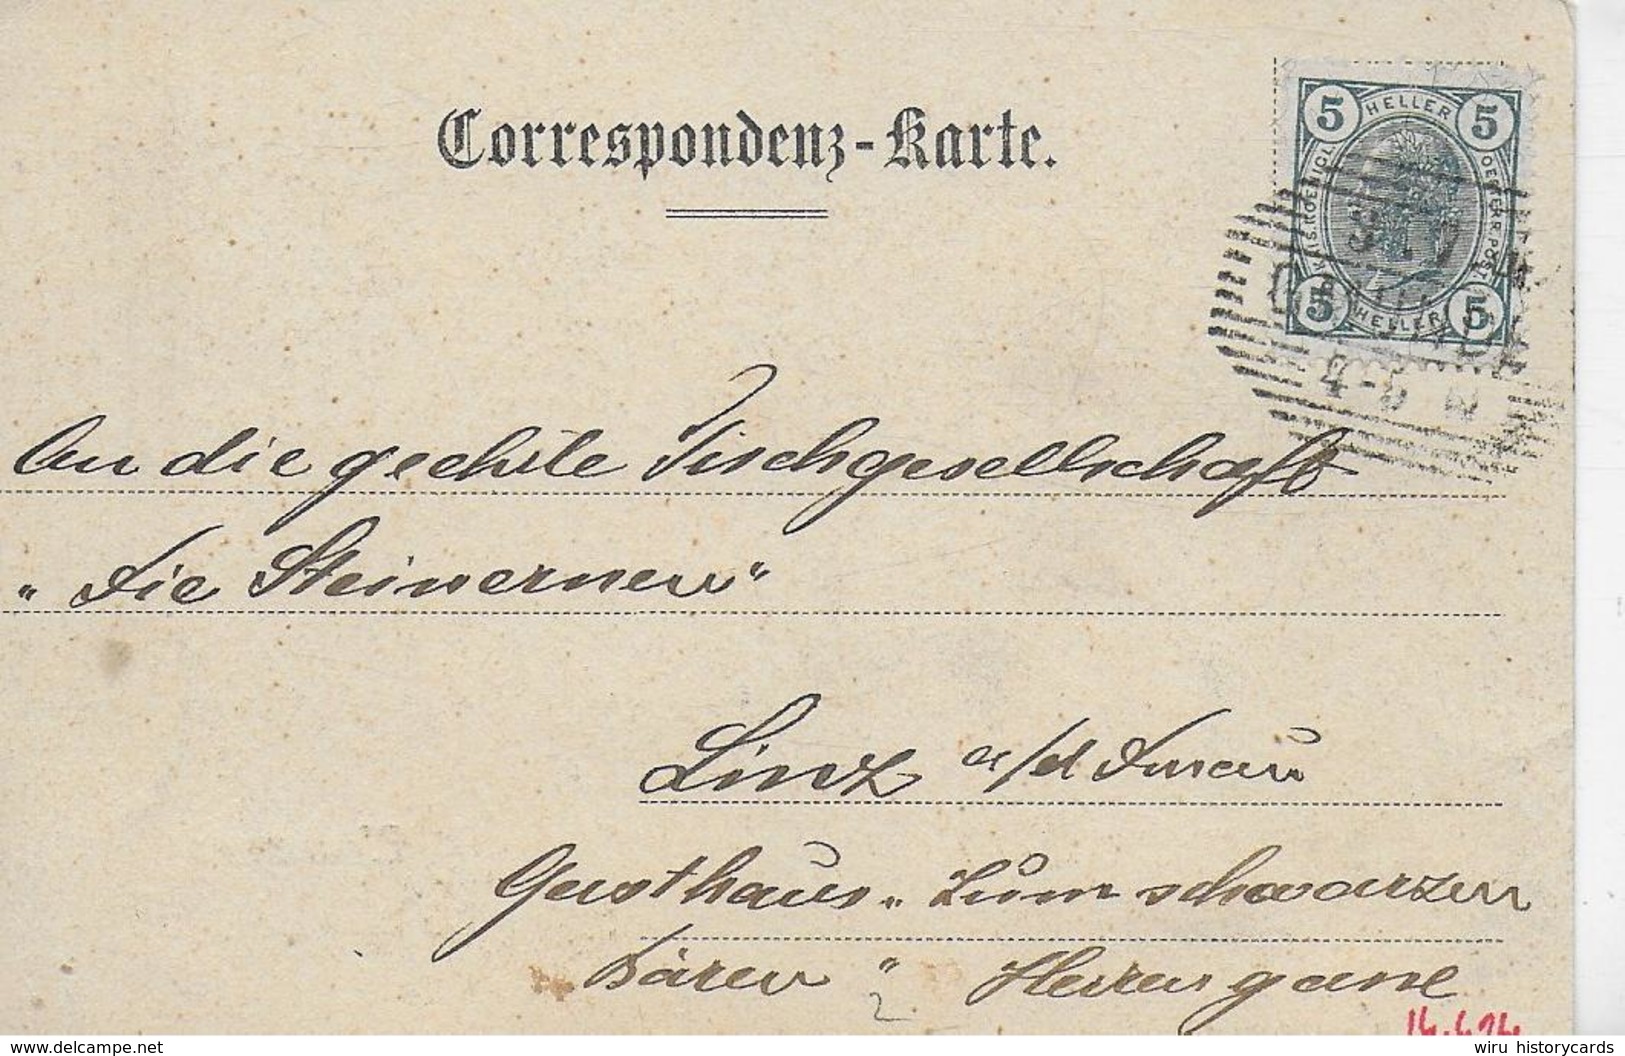 Correspondenz-Karte.
5 HELLER 5
KAIS. KOENIGL. OESTERR. POST
5 HELLER 5
4-5 N
An die geehrte Tischgesellschaft
„Die Steinernen"
Linz a/d Donau
Gasthaus „Zum schwarzen
Bären" Herrengasse
2
delcampe.net
wiru historycards